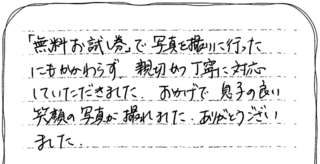 「無料お試し券」で写真を撮りに行った
にもかかわらず、親切かつ丁寧に対応
していただきました。おかげで、息子の良い
笑顔の写真が撮れました。ありがとうござい
ました。